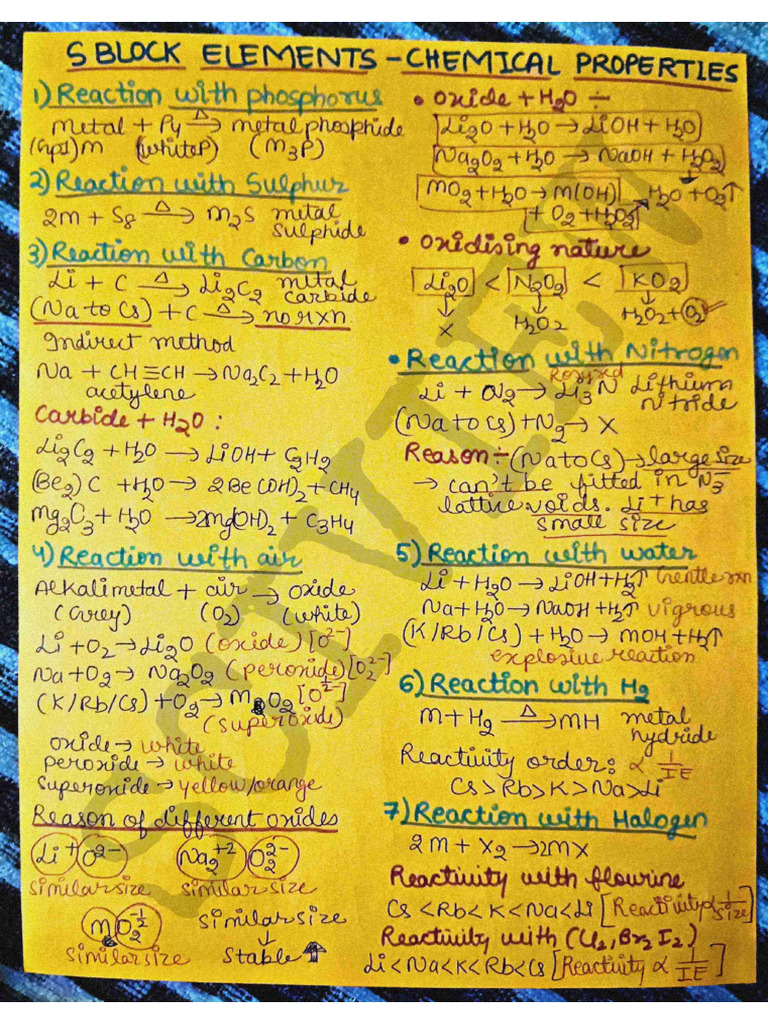 S BLOCK ELEMENTS - CHEMICAL PROPERTIES
1) Reaction with phosphorus
metal + P4 Δ→ metal phosphide
(Gp1) M (white P) (M3P)
2) Reaction with Sulphur
2M + S8 Δ→ M2S metal
sulphide
3) Reaction with Carbon
Li + C Δ→ Li2C2 metal
carbide
(Na to Cs) + C Δ→ no rxn
Indirect method
Na + CH≡CH → Na2C2 + H2O
acetylene
Carbide + H2O :
Li2C2 + H2O → LiOH + C2H2
(Be2)C + H2O → 2Be(OH)2 + CH4
Mg2C3 + H2O → 2Mg(OH)2 + C3H4
4) Reaction with air
Alkali metal + air → oxide
(Grey) (O2) (white)
Li + O2 → Li2O (oxide) [O2-]
Na + O2 → Na2O2 (peroxide) [O2 2-]
(K/Rb/Cs) + O2 → MO2 [O 1/2-]
(superoxide)
oxide → white
peroxide → white
superoxide → yellow/orange
Reason of different oxides
Li+ O2- Na2+2 O2 2-
similar size similar size
MO2 -1/2 similar size
similar size ↓
stable ⇑
• oxide + H2O ÷
Li2O + H2O → LiOH + H2O
Na2O2 + H2O → NaOH + H2O2
MO2 + H2O → M(OH) H2O + O2↑
+ O2 + H2O2
• Oxidising nature
Li2O < N2O2 < KO2
↓ ↓ ↓
X H2O2 H2O2 + O2
• Reaction with Nitrogen
Li + N2 → Li3N Lithium
nitride
(Na to Cs) + N2 → X
Reason ÷ (Na to Cs) → large size
→ can't be fitted in N3-
lattice voids. Li+ has
small size
5) Reaction with water
Li + H2O → LiOH + H2↑ Gentle rxn
Na + H2O → NaOH + H2↑ vigrous
(K/Rb/Cs) + H2O → MOH + H2↑
explosive reaction
6) Reaction with H2
M + H2 Δ→ MH metal
hydride
Reactivity order: ∝ 1/IE
Cs > Rb > K > Na > Li
7) Reaction with Halogen
2M + X2 → 2MX
Reactivity with flourine
Cs < Rb < K < Na < Li [Reactivity ∝ 1/size]
Reactivity with (Cl2, Br2 I2)
Li < Na < K < Rb < Cs [Reactivity ∝ 1/IE]